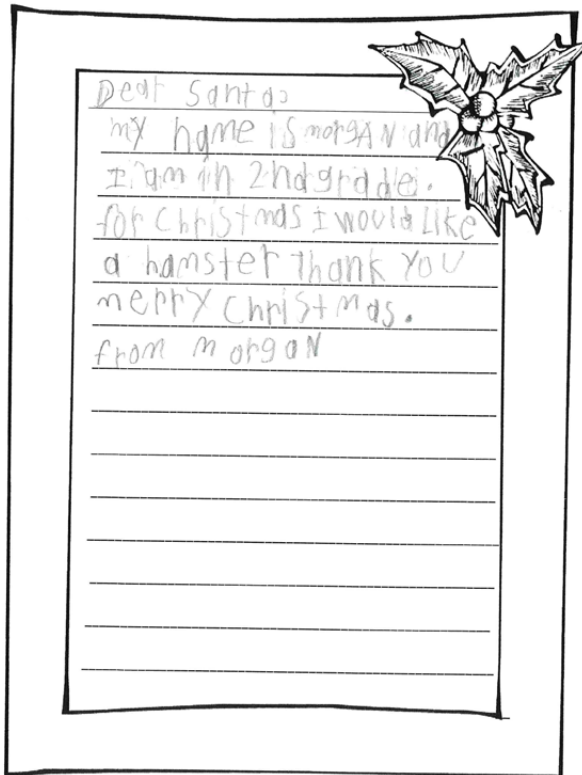 Dear Santa,
my name is morgAN and
I am in 2nd grade.
for Christmas I would Like
a hamster Thank YOU
merry Christmas.
from morgaN